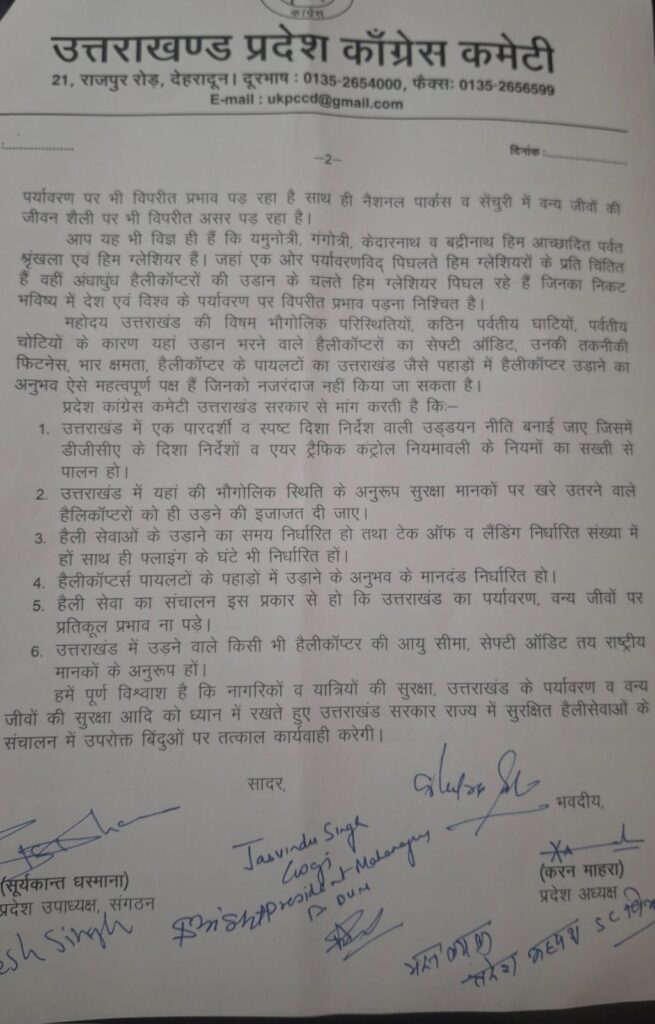 कांग्रेस
उत्तराखण्ड प्रदेश काँग्रेस कमेटी
21, राजपुर रोड़, देहरादून। दूरभाष : 0135-2654000, फैक्सः 0135-2656599
E-mail : ukpccd@gmail.com
दिनांक:
–2–
पर्यावरण पर भी विपरीत प्रभाव पड़ रहा है साथ ही नैशनल पार्कस व सेंचुरी में वन्य जीवों की
जीवन शैली पर भी विपरीत असर पड़ रहा है।
आप यह भी विज्ञ ही हैं कि यमुनोत्री, गंगोत्री, केदारनाथ व बद्रीनाथ हिम आच्छादित पर्वत
श्रृंखला एवं हिम ग्लेशियर हैं। जहां एक ओर पर्यावरणविद् पिघलते हिम ग्लेशियरों के प्रति चिंतित
हैं वहीं अंधाधुंध हैलीकॉप्टरों की उडान के चलते हिम ग्लेशियर पिघल रहे हैं जिनका निकट
भविष्य में देश एवं विश्व के पर्यावरण पर विपरीत प्रभाव पड़ना निश्चित है।
महोदय उत्तराखंड की विषम भौगोलिक परिस्थितियों, कठिन पर्वतीय घाटियों, पर्वतीय
चोटियों के कारण यहां उड़ान भरने वाले हैलीकॉप्टरों का सेफ्टी ऑडिट, उनकी तकनीकी
फिटनेस, भार क्षमता, हैलीकॉप्टर के पायलटों का उत्तराखंड जैसे पहाड़ों में हैलीकॉप्टर उड़ाने का
अनुभव ऐसे महत्वपूर्ण पक्ष हैं जिनको नजरंदाज नहीं किया जा सकता है।
प्रदेश कांग्रेस कमेटी उत्तराखंड सरकार से मांग करती है किः–
1. उत्तराखंड में एक पारदर्शी व स्पष्ट दिशा निर्देश वाली उड्डयन नीति बनाई जाए जिसमें
डीजीसीए के दिशा निर्देशों व एयर ट्रैफिक कंट्रोल नियमावली के नियमों का सख्ती से
पालन हो।
2. उत्तराखंड में यहां की भौगोलिक स्थिति के अनुरूप सुरक्षा मानकों पर खरे उतरने वाले
हैलिकॉप्टरों को ही उड़ने की इजाजत दी जाए।
3. हैली सेवाओं के उड़ाने का समय निर्धारित हो तथा टेक ऑफ व लैंडिंग निर्धारित संख्या में
हों साथ ही फ्लाइंग के घंटे भी निर्धारित हों।
4. हैलीकॉप्टर्स पायलटों के पहाड़ों में उड़ाने के अनुभव के मानदंड निर्धारित हो।
5. हैली सेवा का संचालन इस प्रकार से हो कि उत्तराखंड का पर्यावरण, वन्य जीवों पर
प्रतिकूल प्रभाव ना पड़े।
6. उत्तराखंड में उड़ने वाले किसी भी हैलीकॉप्टर की आयु सीमा, सेफ्टी ऑडिट तय राष्ट्रीय
मानकों के अनुरूप हों।
हमें पूर्ण विश्वाश है कि नागरिकों व यात्रियों की सुरक्षा, उत्तराखंड के पर्यावरण व वन्य
जीवों की सुरक्षा आदि को ध्यान में रखते हुए उत्तराखंड सरकार राज्य में सुरक्षित हैलीसेवाओं के
संचालन में उपरोक्त बिंदुओं पर तत्काल कार्यवाही करेगी।
सादर,
भवदीय,
Jasvinder Singh
Gogi
President Mahanagar
D DUN
(सूर्यकान्त धस्माना)
प्रदेश उपाध्यक्ष, संगठन
(करन माहरा)
प्रदेश अध्यक्ष
esh Singh
प्रदेश अध्यक्ष SC